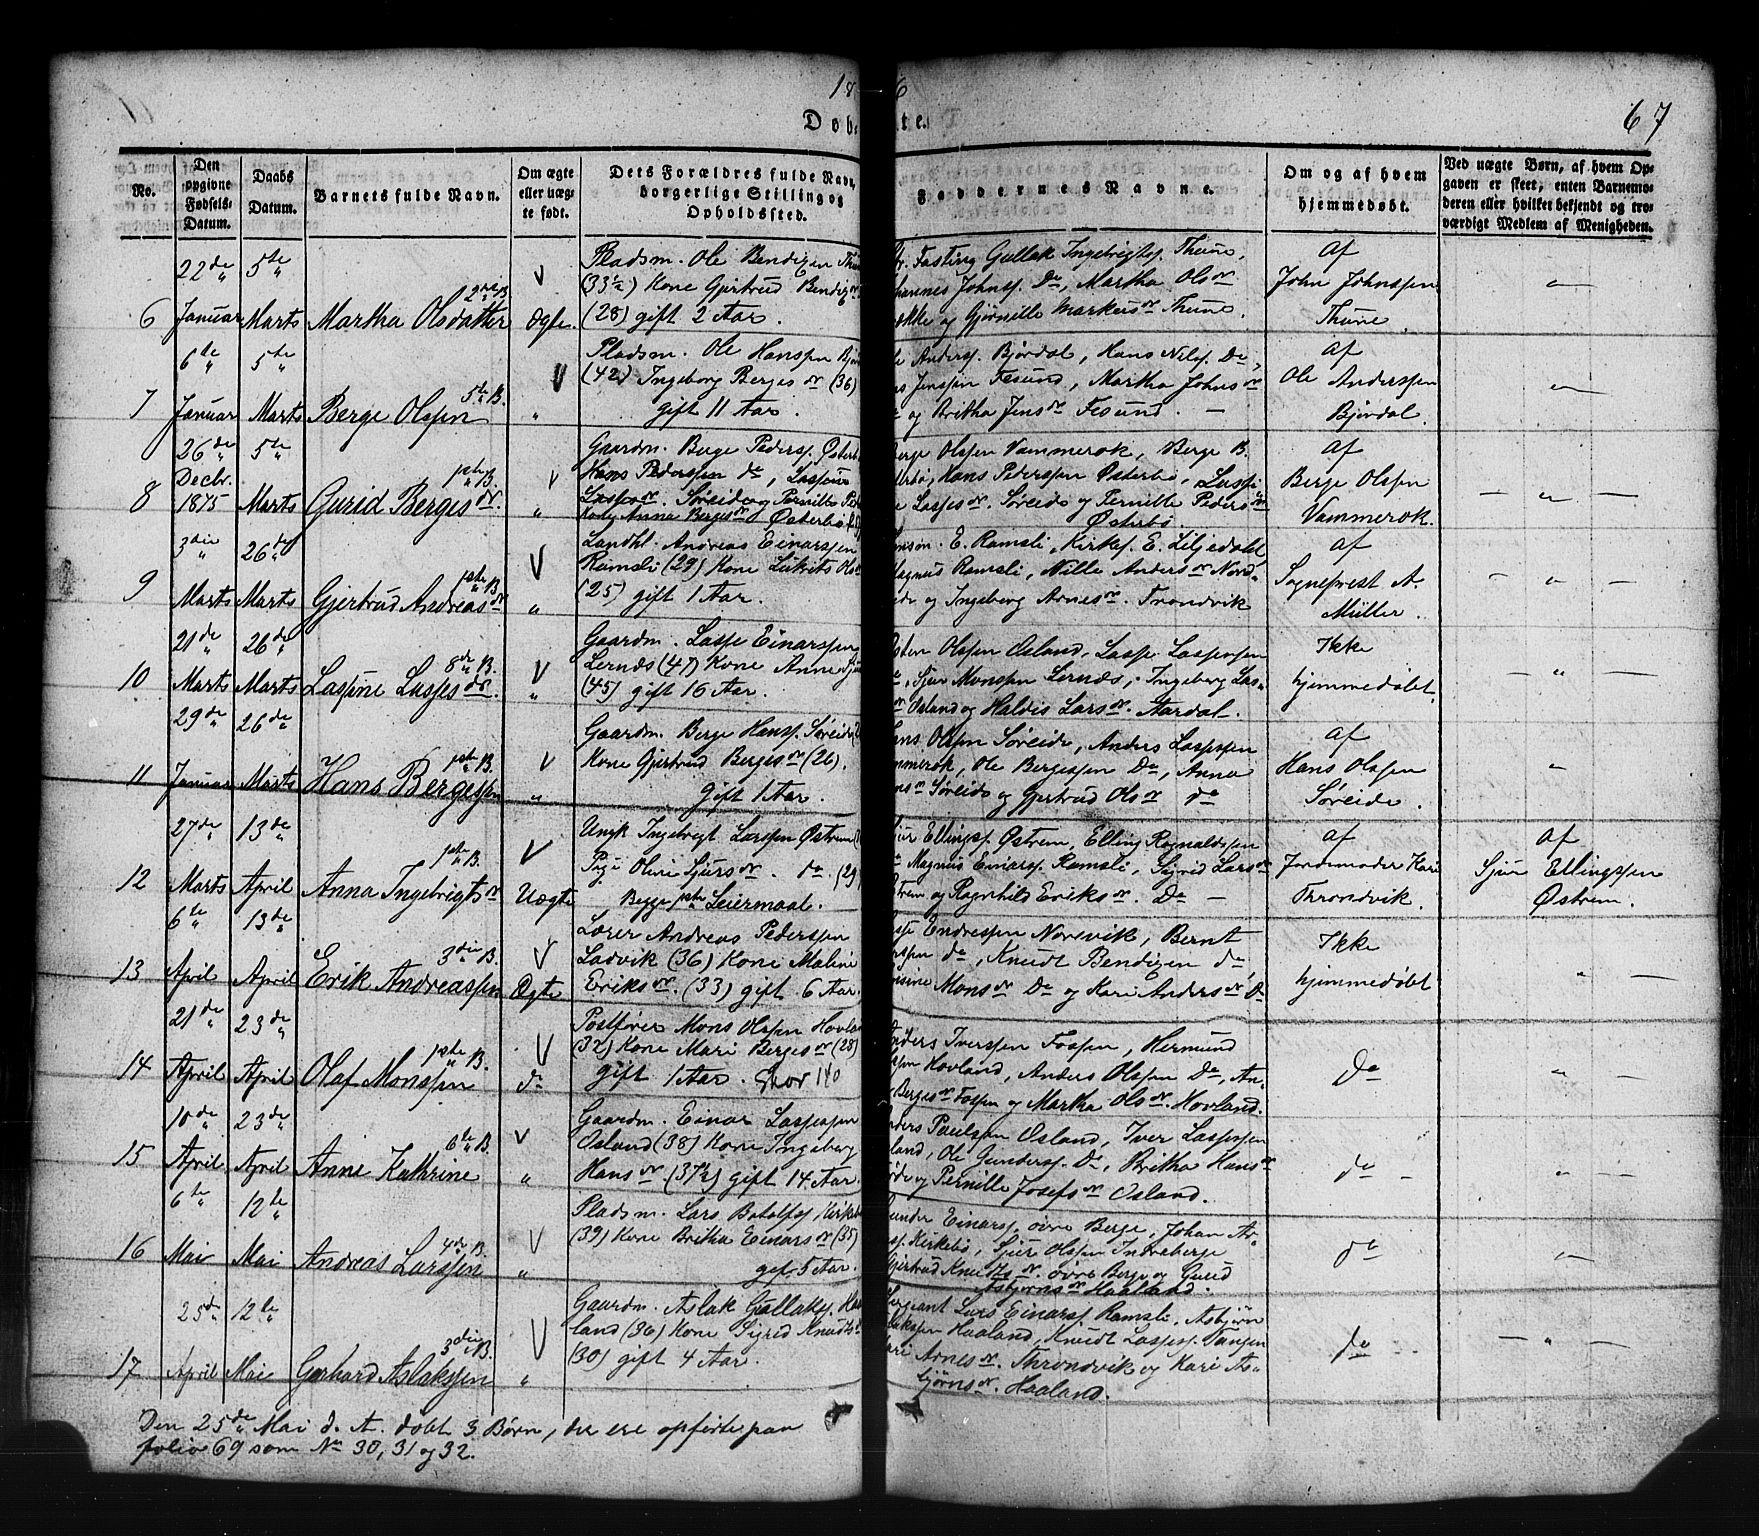 18
6
67
Døb
te.
No.
Den opgivne Fødsels-Datum.
Daabs Datum.
Barnets fulde Navn.
Om ægte eller uægte født.
Dets Forældres fulde Navn, borgerlige Stilling og Opholdssted.
Faddernes Navne.
Om og af hvem hjemmedøbt.
Ved uægte Børn, af hvem Opgaven er skeet, enten Barnemoderen eller hvilket bekjendt og troværdigt Medlem af Menigheden.
6
22de Januar
5te Marts
Martha Olsdatter
2det B.
Ægte
Pladsm. Ole Bendixen
(33½) Kone Gjertrud
(28) gift 2 Aar.
Fasting Gullak Ingebrigtsp. Thune,
Johnsp. De, Martha Olsdr
og Gjørnille Markusdr Thune.
af
John Johnssen
Thune.
"
7
6te Januar
5te Marts
Berge Olssen
5te B.
"
Pladsm. Ole Hanssen
(42) Ingeborg Bergesdr (36)
gift 11 Aar.
Andersp. Bjordal, Hans Nilsp. De,
Jenssen Fesund, Martha Johnsdr
og Britha Jensdr Fesund. —
af
Ole Anderssen
Bjordal.
"
8
26de Decbr. 1875
5te Marts
Gurid Bergesdr.
1ste B.
"
Gaardm. Berge Pedersp. Østerbø
Hans Pederssen de, Lassine
Søreide og Pernille
Anna Bergesdr Østerbø
Olssen Vammerok, Berge B.
Hans Pederssen Østerbø, Lassi
Lassesdr. Søreide og Pernille Pedersdr
Østerbø.
af
Berge Olssen
Vammerok.
— " —
9
3die Marts
26de Marts
Gjertrud Andreasdr
1ste B.
"
Landhl. Andreas Einarssen
Ramsli (29) Kone
(25) gift 1 Aar.
E. Ramsli, Kirkes. E. Liljedahl
Magnus Ramsli, Nille Andersdr Nord-
og Ingeborg Arnesdr. Trondvik
af
Sogneprest A
Müller.
— " —
10
21de Marts
26de Marts
Lassine Lassesdr.
8de B.
"
Gaardm. Lasse Einarssen
Lernæs (47) Kone Anne
(45) gift 16 Aar.
Olssen Osland, Lasse Lassessen
Sjur Monssen Lernæs, Ingeborg Las-
Osland og Haldis Larsdr. Aardal.
Ikke
hjemmedøbt.
— " —
11
29de Januar
26de Marts
Hans Bergessen
1ste B.
"
Gaardm. Berge Hansp. Søreide
Kone Gjertrud Bergesdr (26).
gift 1 Aar.
Olssen Søreide, Anders Lassessen
Ole Bergessen De, Anna
Søreide og Gjertrud Olsdr de
af
Hans Olssen
Søreide.
"
12
27de Marts
13de April
Anna Ingebrigtsdr
1ste B.
Uægte
Ungk Ingebrigt Larssen Østrem
Pige Oline Sjursdr. de. (29
Begge 1ste Leiermaal.
Ellingsp. Østrem, Elling Rognaldssen
Magnus Einarsp. Ramsli, Sigrid Larsdr
og Ragnhild Eriksdr. De —
af
Jordemoder Kari
Throndvik.
af
Sjur Ellingssen
Østrem.
13
6te April
13de April
Erik Andreassen
3die B.
Ægte
Lærer Andreas Pederssen
Ladvik (36) Kone Maline
Eriksdr. (33) gift 6 Aar.
Endressen Norevik, Bernt
de, Knudt Bendixen de,
Monsdr De og Kari Andersdr, De
Ikke
hjemmedøbt
"
14
21de April
23de April
Olaf Monssen
1ste B.
de
Postfører Mons Olssen Hovland
(32) Kone Mari Bergesdr (28)
gift 1 Aar. 140
Iverssen Fossen, Hermund
Hovland, Anders Olssen De, An-
Bergesdr Fossen og Martha Olsdr. Hovland.
de
" —
15
10de April
23de April
Anne Kathrine
6te B.
"
Gaardm. Einar Lassessen
Osland (38) Kone Ingeborg
Hansdr. (37½) gift 14 Aar.
Paulsen Osland, Iver Lassessen
Ole Gundersp. De, Britha Hansdr
og Pernille Josefsdr Osland.
de -
"
16
6te Mai
12te Mai
Andreas Larssen
4de B.
"
Pladsm. Lars Botolfsp.
(39) Kone Britha Einarsdr (35)
gift 5 Aar.
Einarsp. øvre Berge, Johan
Kirkebø, Sjur Olssen Indreberge
Gjertrud Knudtsdr. øvre Berge og Gurid
Asbjørnsdr Haaland.
de
"
17
25de April
12te Mai
Gerhard Aslakssen
3die B.
"
Gaardm. Aslak Gullaksp. Haa
land (36) Kone Sigrid Knudtsdr
(30) gift 4 Aar.
Sergeant Lars Einarsp. Ramsli, Asbjørn
Haaland, Knudt Lassesp. Tangen
Arnesdr. Throndvik og Kari As-
bjørnsdr. Haaland.
de
— " —
Den 25de Mai d. A. døbt 3 Børn, der ere opførte paa
folio 69 som No 30, 31 og 32.